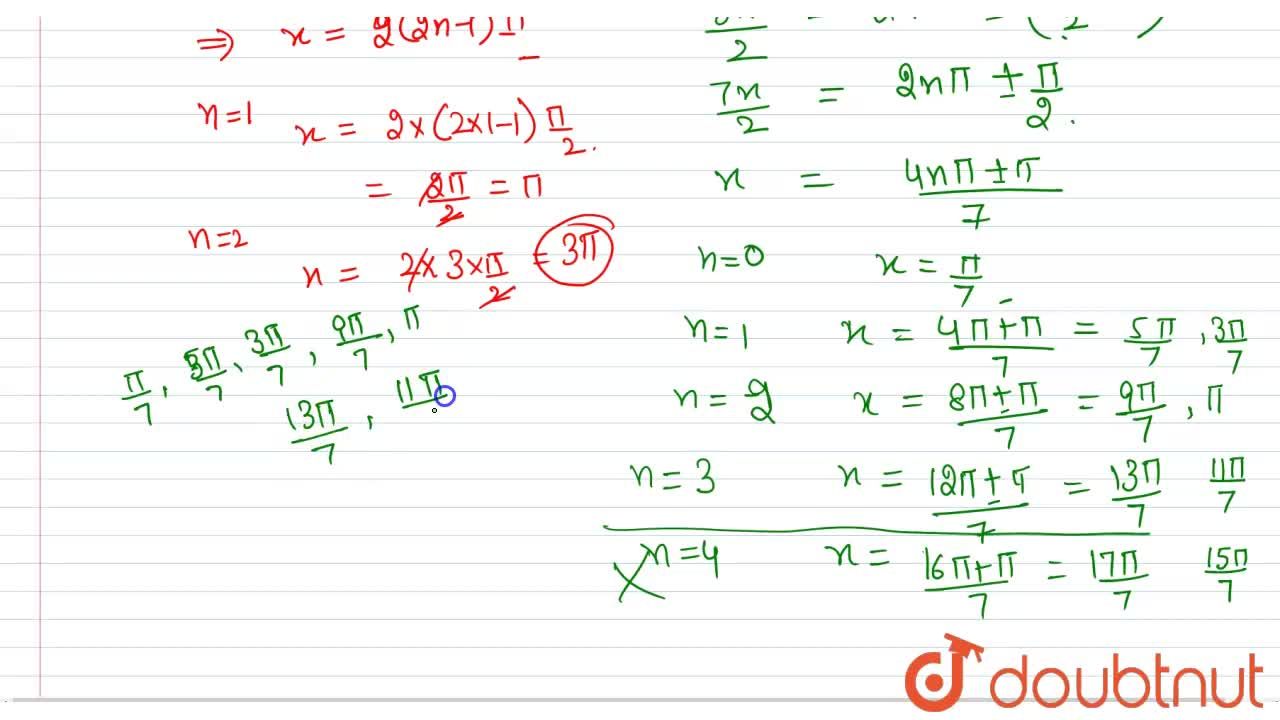 ⇒ x = 2(2n-1)π
n=1
x = 2×(2×1-1) π/2.
= 2π/2 = π
n=2
x = 2× 3×π/2 = 3π
π/7, 5π/7, 3π/7, 9π/7, π
13π/7, 11π
7x/2 = 2nπ ± π/2.
x = 4nπ±π/7
n=0 x = π/7
n=1 x = 4π±π/7 = 5π/7, 3π/7
n=2 x = 8π±π/7 = 9π/7, π
n=3 x = 12π±π/7 = 13π/7 11π/7
n=4 x = 16π±π/7 = 17π/7 15π/7
doubtnut